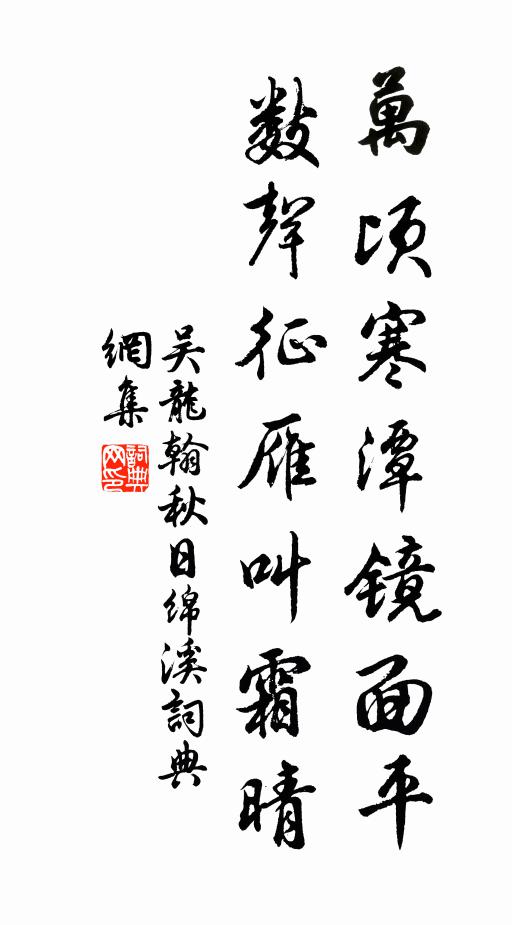 萬頃寒潭镜面平
数聲征雁叫霜晴
吴龍翰秋日绵溪詞典
網集
詞典網印